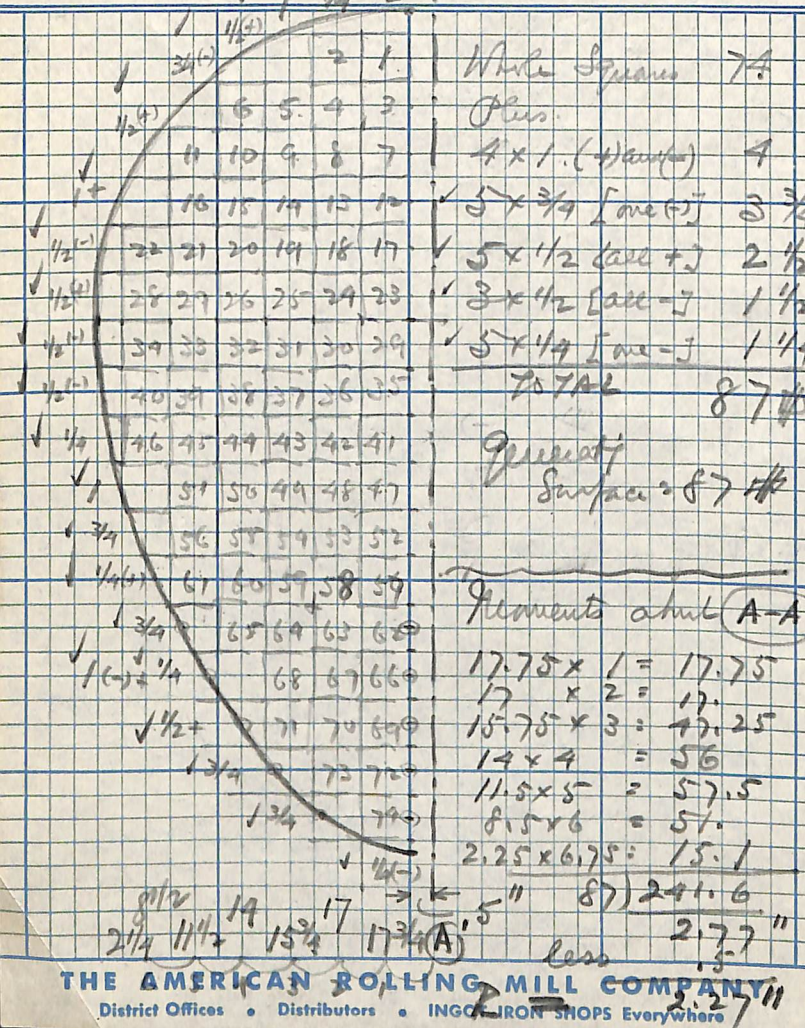 1/2(+)
3/4(-) 2 1
1/2(+) 6 5 4 3
11 10 9 8 7
1+ 16 15 14 13 12
1/2(-) 22 21 20 19 18 17
1/2(+) 28 27 26 25 24 23
1/2(-) 34 33 32 31 30 29
1/2(-) 40 39 38 37 36 35
1/4 46 45 44 43 42 41
1 51 50 49 48 47
3/4 56 55 54 53 52
1/4(+) 61 60 59 58 57
3/4 65 64 63 62
1(-)+1/4 68 67 66
1/2+ 71 70 69
3/4 73 72
3/4 74
1/4(-)
8 1/2 14 17 5"
2 1/4 11 1/2 15 3/4 17 3/4 A
Whole Squares 74
Plus
4 x 1. (+) and (-) 4
5 x 3/4 [one (-)] 3 3/4
5 x 1/2 [all +] 2 1/2
3 x 1/2 [all -] 1 1/2
5 x 1/4 [one -] 1 1/4
TOTAL 87
Generating
Surface = 87
Moments about A-A
17.75 x 1 = 17.75
17 x 2 = 17.
15.75 x 3 = 47.25
14 x 4 = 56
11.5 x 5 = 57.5
8.5 x 6 = 51.
2.25 x 6.75 = 15.1
87) 241.6
2.77"
less .5
2.27"
THE AMERICAN ROLLING MILL COMPANY
District Offices • Distributors • INGOT IRON SHOPS Everywhere